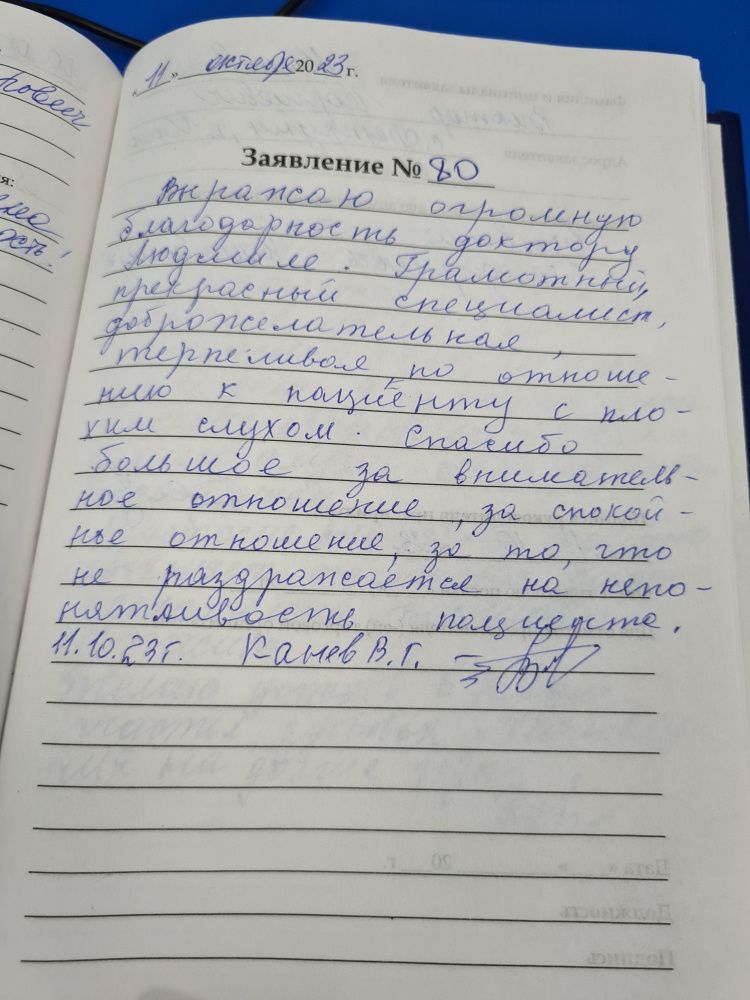 ровесч
я:
ость!
«11» октября 2023 г.
Заявление № 80
Выражаю огромную
благодарность доктору
Людмиле. Грамотный,
прекрасный специалист,
доброжелательная,
терпеливая по отноше-
нию к пациенту с пло-
хим слухом. Спасибо
большое за вниматель-
ное отношение, за спокой-
ное отношение, за то, что
не раздражается на непо-
нятливость пациента.
11.10.23г. Канев В.Г.